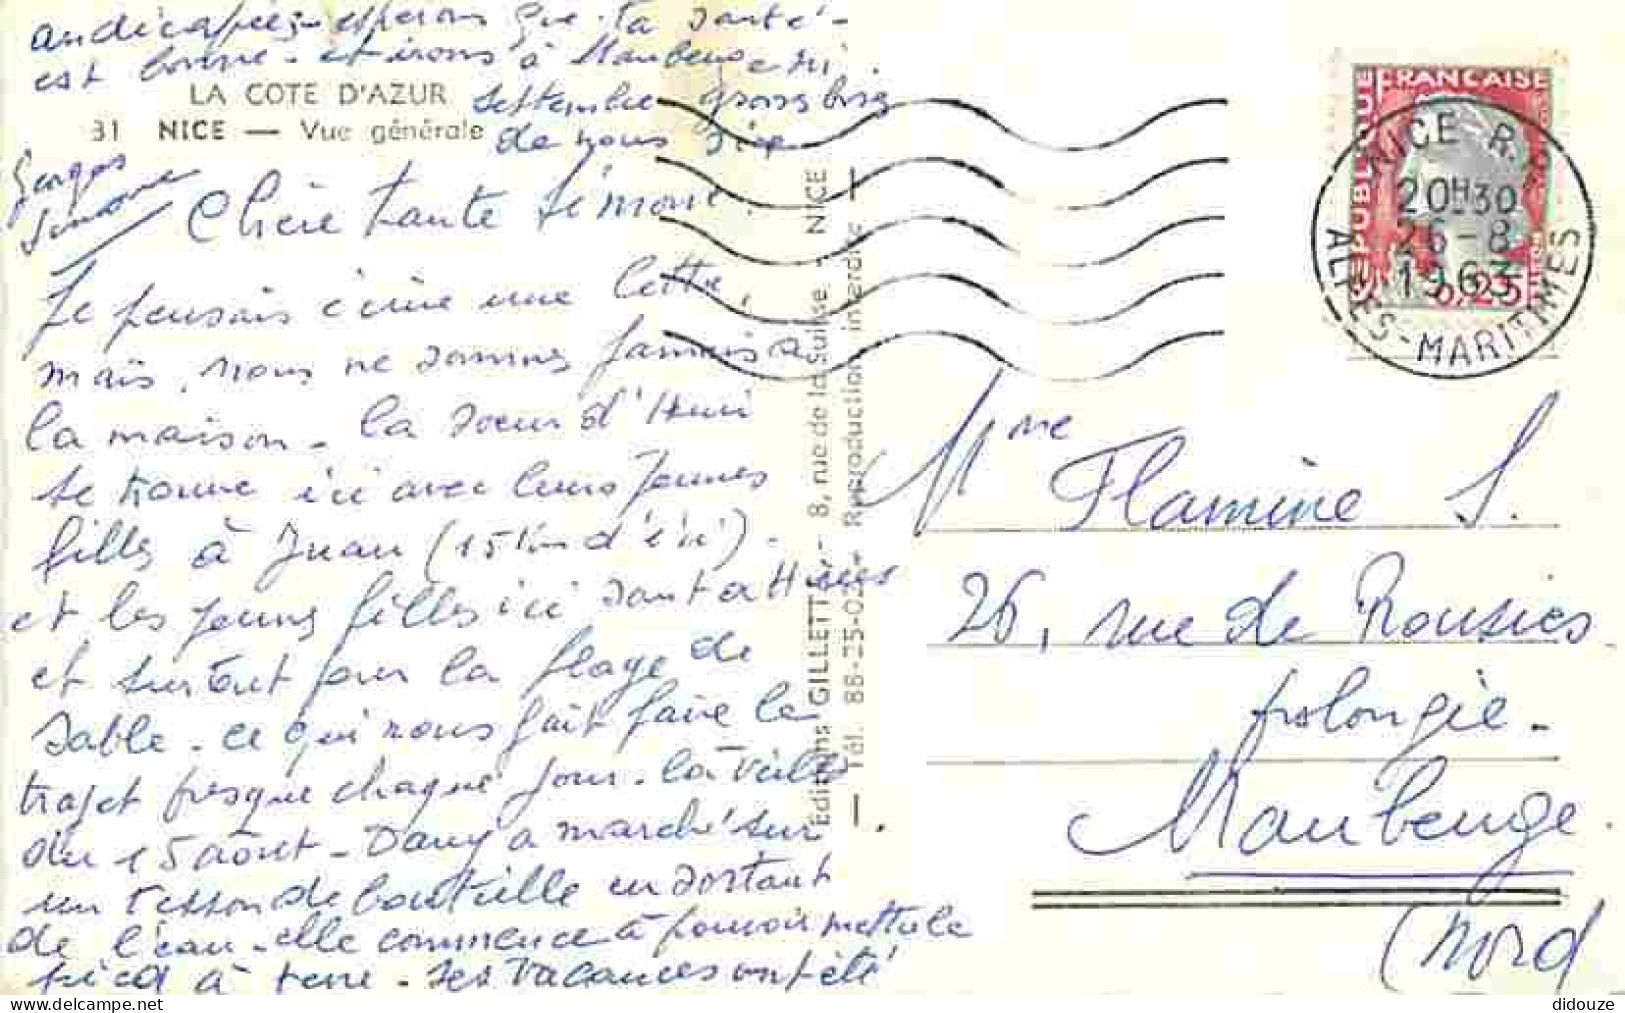 andicapée, espérons que ta santé
est bonne - et irons à Maubeuge ni
LA COTE D'AZUR
septembre gros bises
31 NICE — Vue générale
de nous six
Georges
Simone
Chère tante Simone
Je pensais écrire une lettre,
mais, nous ne sommes jamais à
la maison - la soeur d'Henri
se trouve ici avec leurs jeunes
filles à Juan (15 km d'ici) -
et les jeunes filles ici sont attirées
et surtout par la plage de
sable - ce qui nous fait faire le
trajet presque chaque jour - la veille
du 15 août - Dany a marché sur
un tesson de bouteille en sortant
de l'eau - elle commence à pouvoir mettre le
pied à terre - ses vacances ont été
Éditions GILLETTA - 8, rue de la Suisse - NICE
— Tél. 88-25-02 + Reproduction interdite —
REPUBLIQUE FRANCAISE
0,25
NICE R.P.
20H30
26-8
1963
ALPES-MARITIMES
Mme Flamine S.
26, rue de Rousies
prolongée -
Maubeuge.
(Nord
didouze